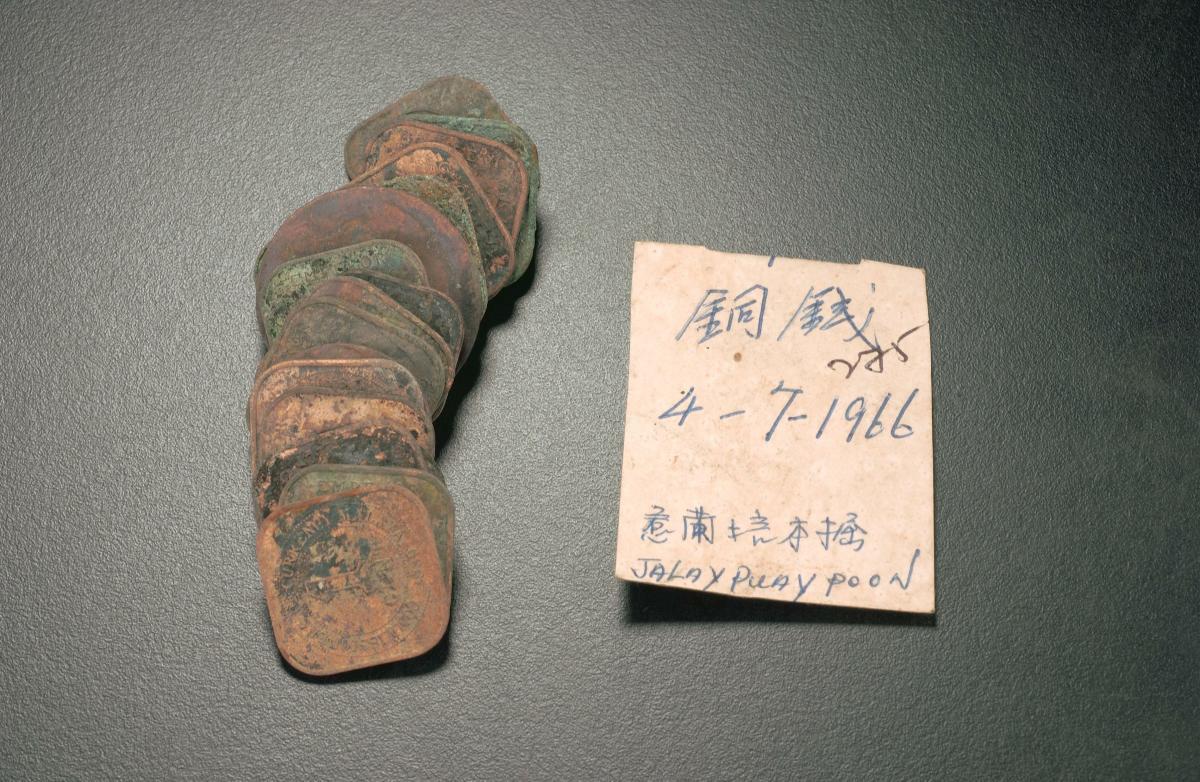 銅錢
225
4-7-1966
惹蘭培本掘
JALAY PUAY POON